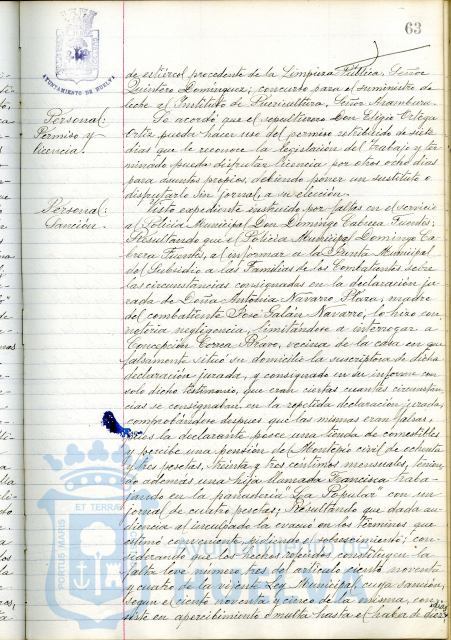 63
AYUNTAMIENTO DE HUELVA
de estiércol procedente de la Limpieza Pública, Señor
Quintero Domínguez; concurso para el suministro de
leche el Instituto de Puericultura, Señor Aramburu.
Personal:
Permiso y
licencia.
Se acordó que el sepulturero Don Eligio Ortega
Ortiz pueda hacer uso del permiso retribuido de siete
días que le reconoce la legislación del Trabajo y ter-
minado pueda disfrutar licencia por otros ocho días
para asuntos propios, debiendo poner un sustituto o
disfrutarlo sin jornal, a su elección.
Personal:
Sanción.
Visto expediente instruido por faltas en el servicio
al Policía Municipal Don Domingo Cabrera Fuentes;
Resultando que el Policía Municipal Domingo Ca-
brera Fuentes, al informar a la Junta Municipal
del Subsidio a las Familias de los Combatientes sobre
las circunstancias consignadas en la declaración ju-
rada de Doña Antonia Navarro Plaza, madre
del combatiente José Galán Navarro, lo hizo con
noticia negligencia, limitándose a interrogar a
Concepción Correa Bravo, vecina de la casa en que
falsamente situó su domicilio la suscriptora de dicha
declaración jurada, y consignado en su informe con
solo dicho testimonio, que eran ciertas cuantas circunstan-
cias se consignaban en la repetida declaración jurada,
comprobándose después que las mismas eran falsas,
pues la declarante posee una tienda de comestibles
y percibe una pensión del Montepío civil de ochenta
y tres pesetas, treinta y tres céntimos mensuales, tenien-
do además una hija llamada Francisca traba-
jando en la panadería La Popular con un
jornal de cuatro pesetas; Resultando que dada au-
diencia al inculpado la evacuó en los términos que
estimó conveniente pidiendo el sobreseimiento; con-
siderando que los hechos referidos constituyen la
falta leve número tres del artículo ciento noventa
y cuatro de la vigente Ley Municipal cuya sanción,
según el ciento noventa y cinco de la misma, con-
siste en apercibimiento o multa hasta el haber de diez
días
PORTUS MARIS ET TERRAE